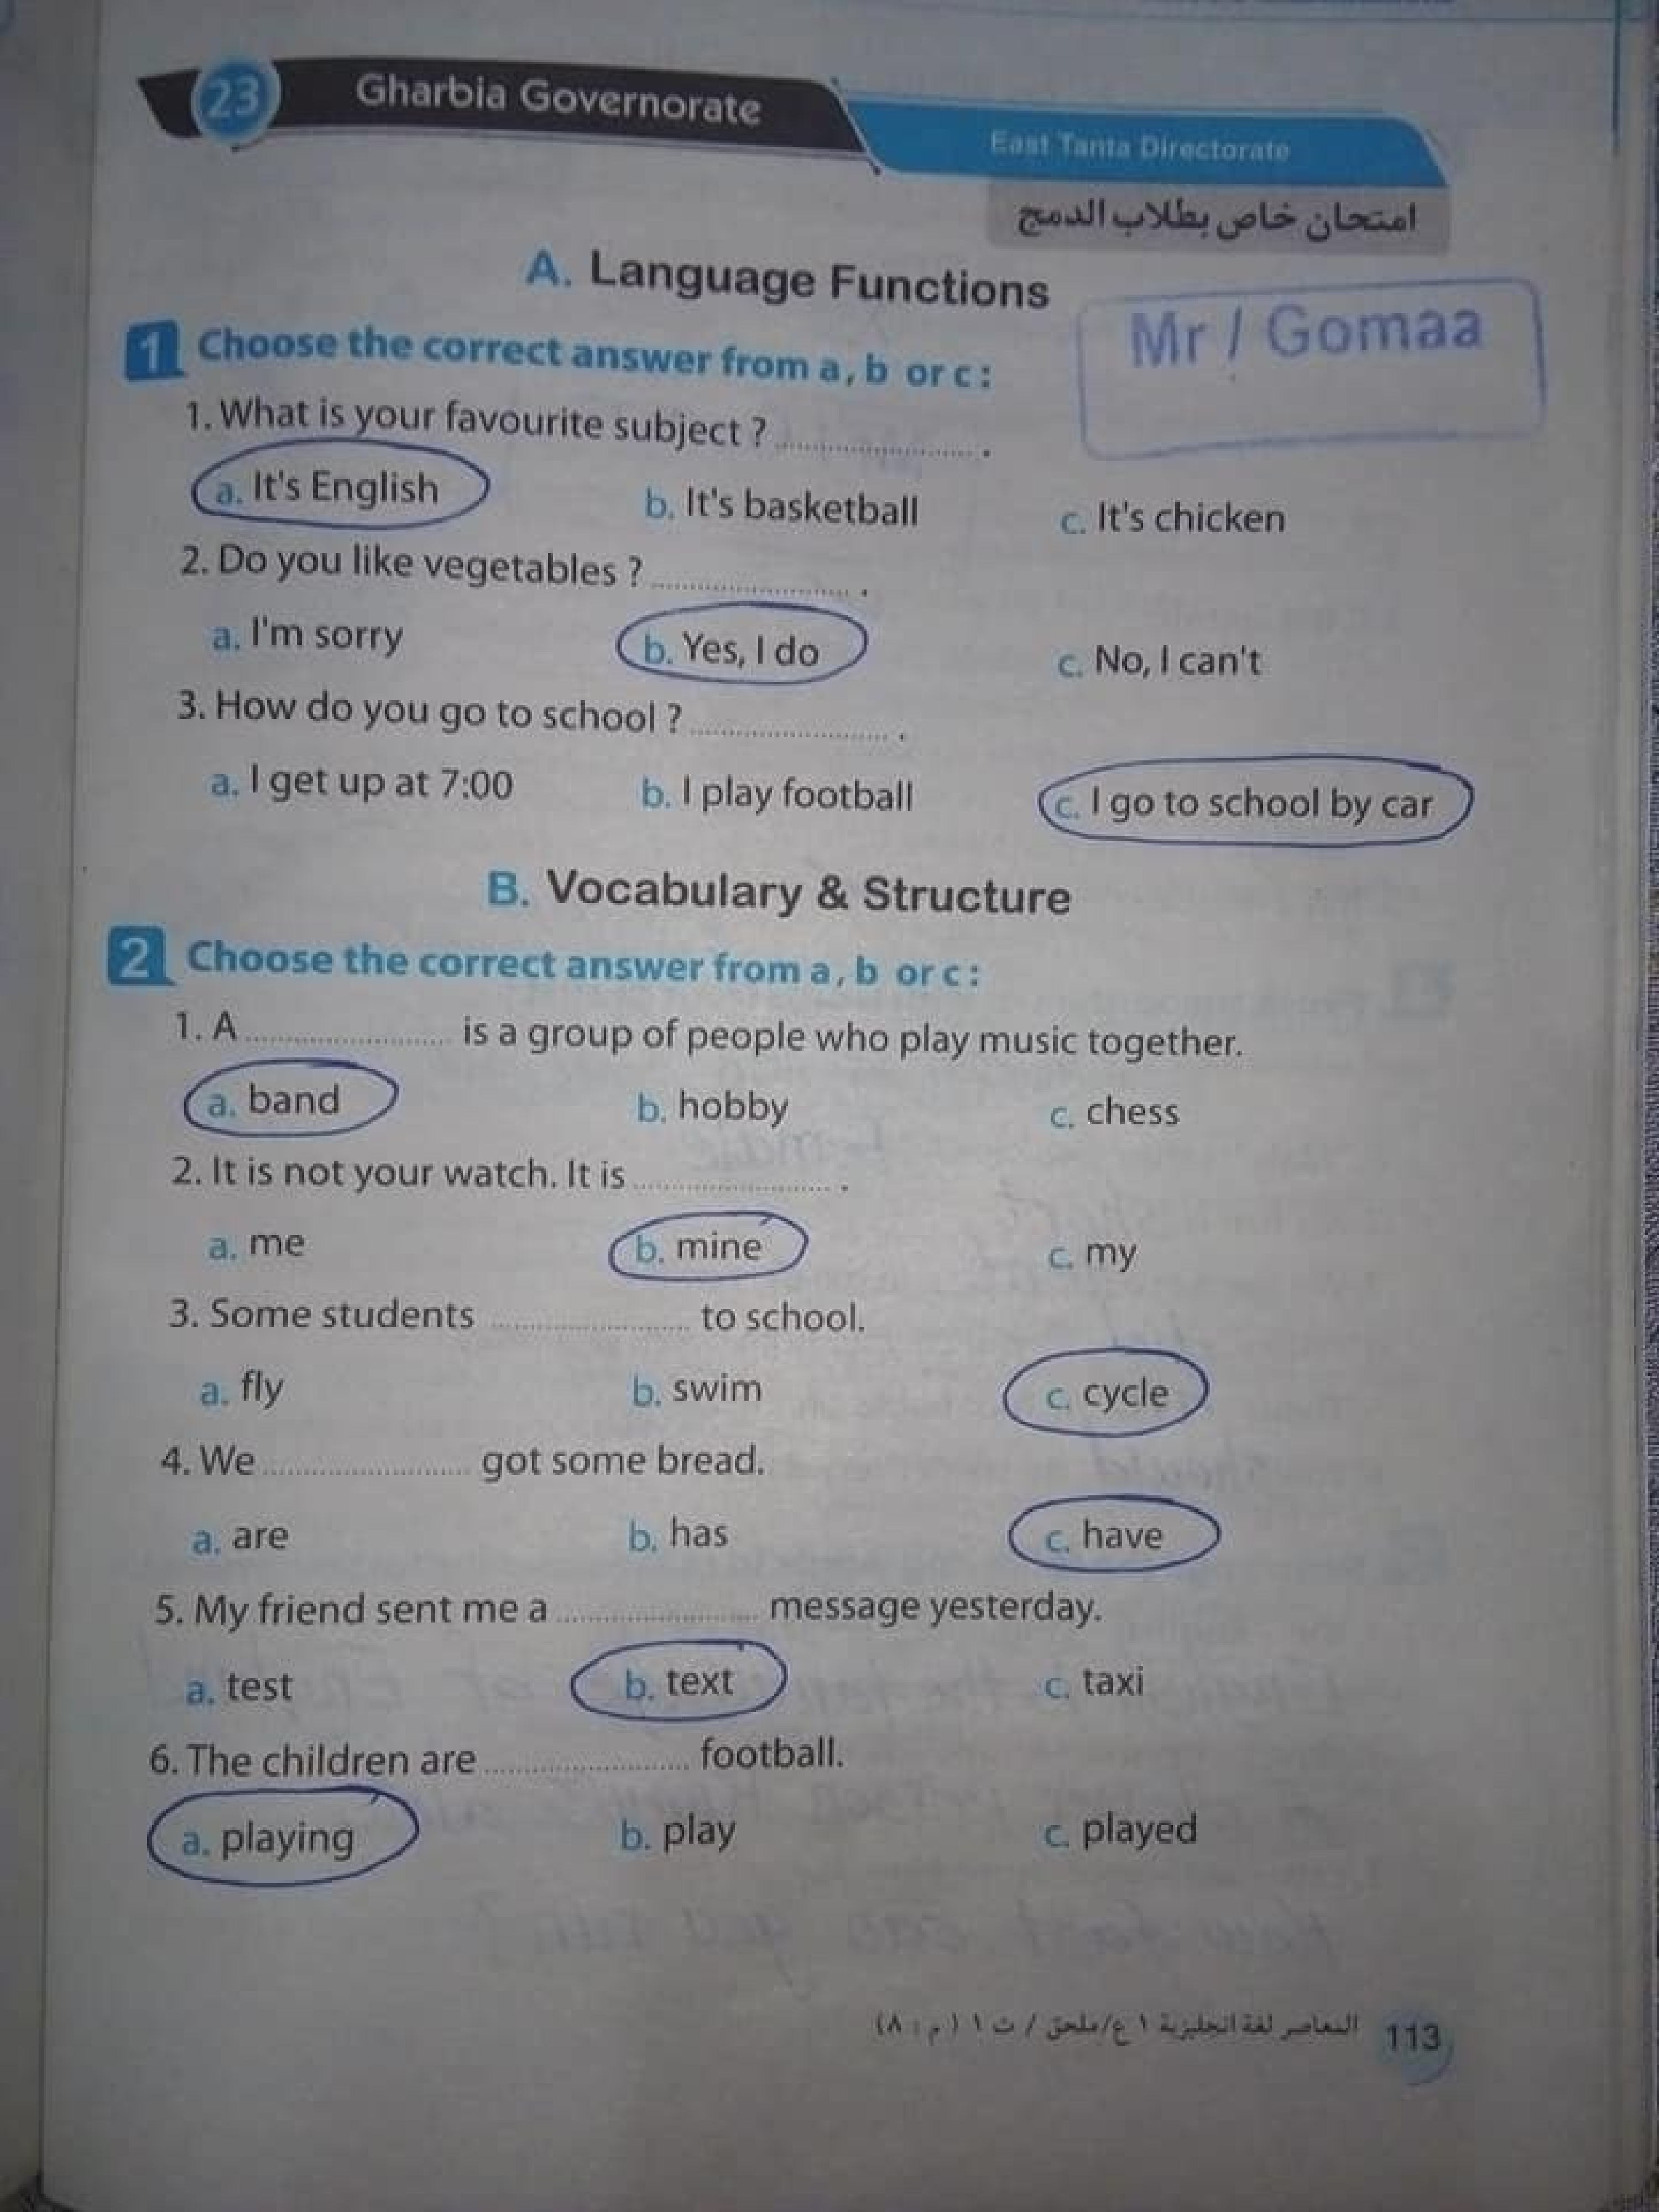 23 Gharbia Governorate
East Tanta Directorate
امتحان خاص بطلاب الدمج
A. Language Functions
Mr / Gomaa
1 Choose the correct answer from a, b or c:
1. What is your favourite subject ? .................... .
a. It's English b. It's basketball c. It's chicken
2. Do you like vegetables ? .................... .
a. I'm sorry b. Yes, I do c. No, I can't
3. How do you go to school ? .................... .
a. I get up at 7:00 b. I play football c. I go to school by car
B. Vocabulary & Structure
2 Choose the correct answer from a, b or c:
1. A .................... is a group of people who play music together.
a. band b. hobby c. chess
2. It is not your watch. It is .................... .
a. me b. mine c. my
3. Some students .................... to school.
a. fly b. swim c. cycle
4. We .................... got some bread.
a. are b. has c. have
5. My friend sent me a .................... message yesterday.
a. test b. text c. taxi
6. The children are .................... football.
a. playing b. play c. played
المعاصر لغة انجليزية ١ ع/ملحق / ت ١ (م : ٨) 113